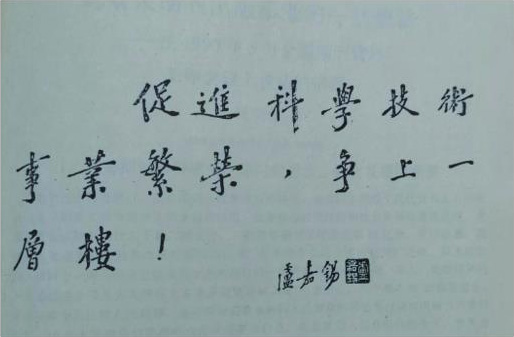 促進科學技術
事業繁榮，争上一
層樓！
盧嘉錫